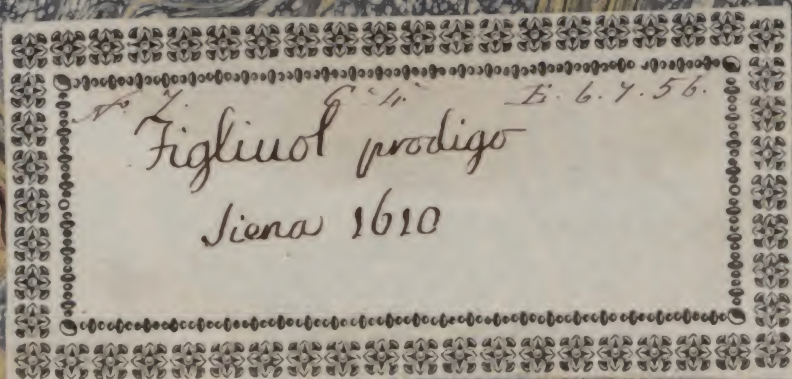 No. 7. G. 4. E. 6. 7. 56.
Figliuol prodigo
Siena 1610